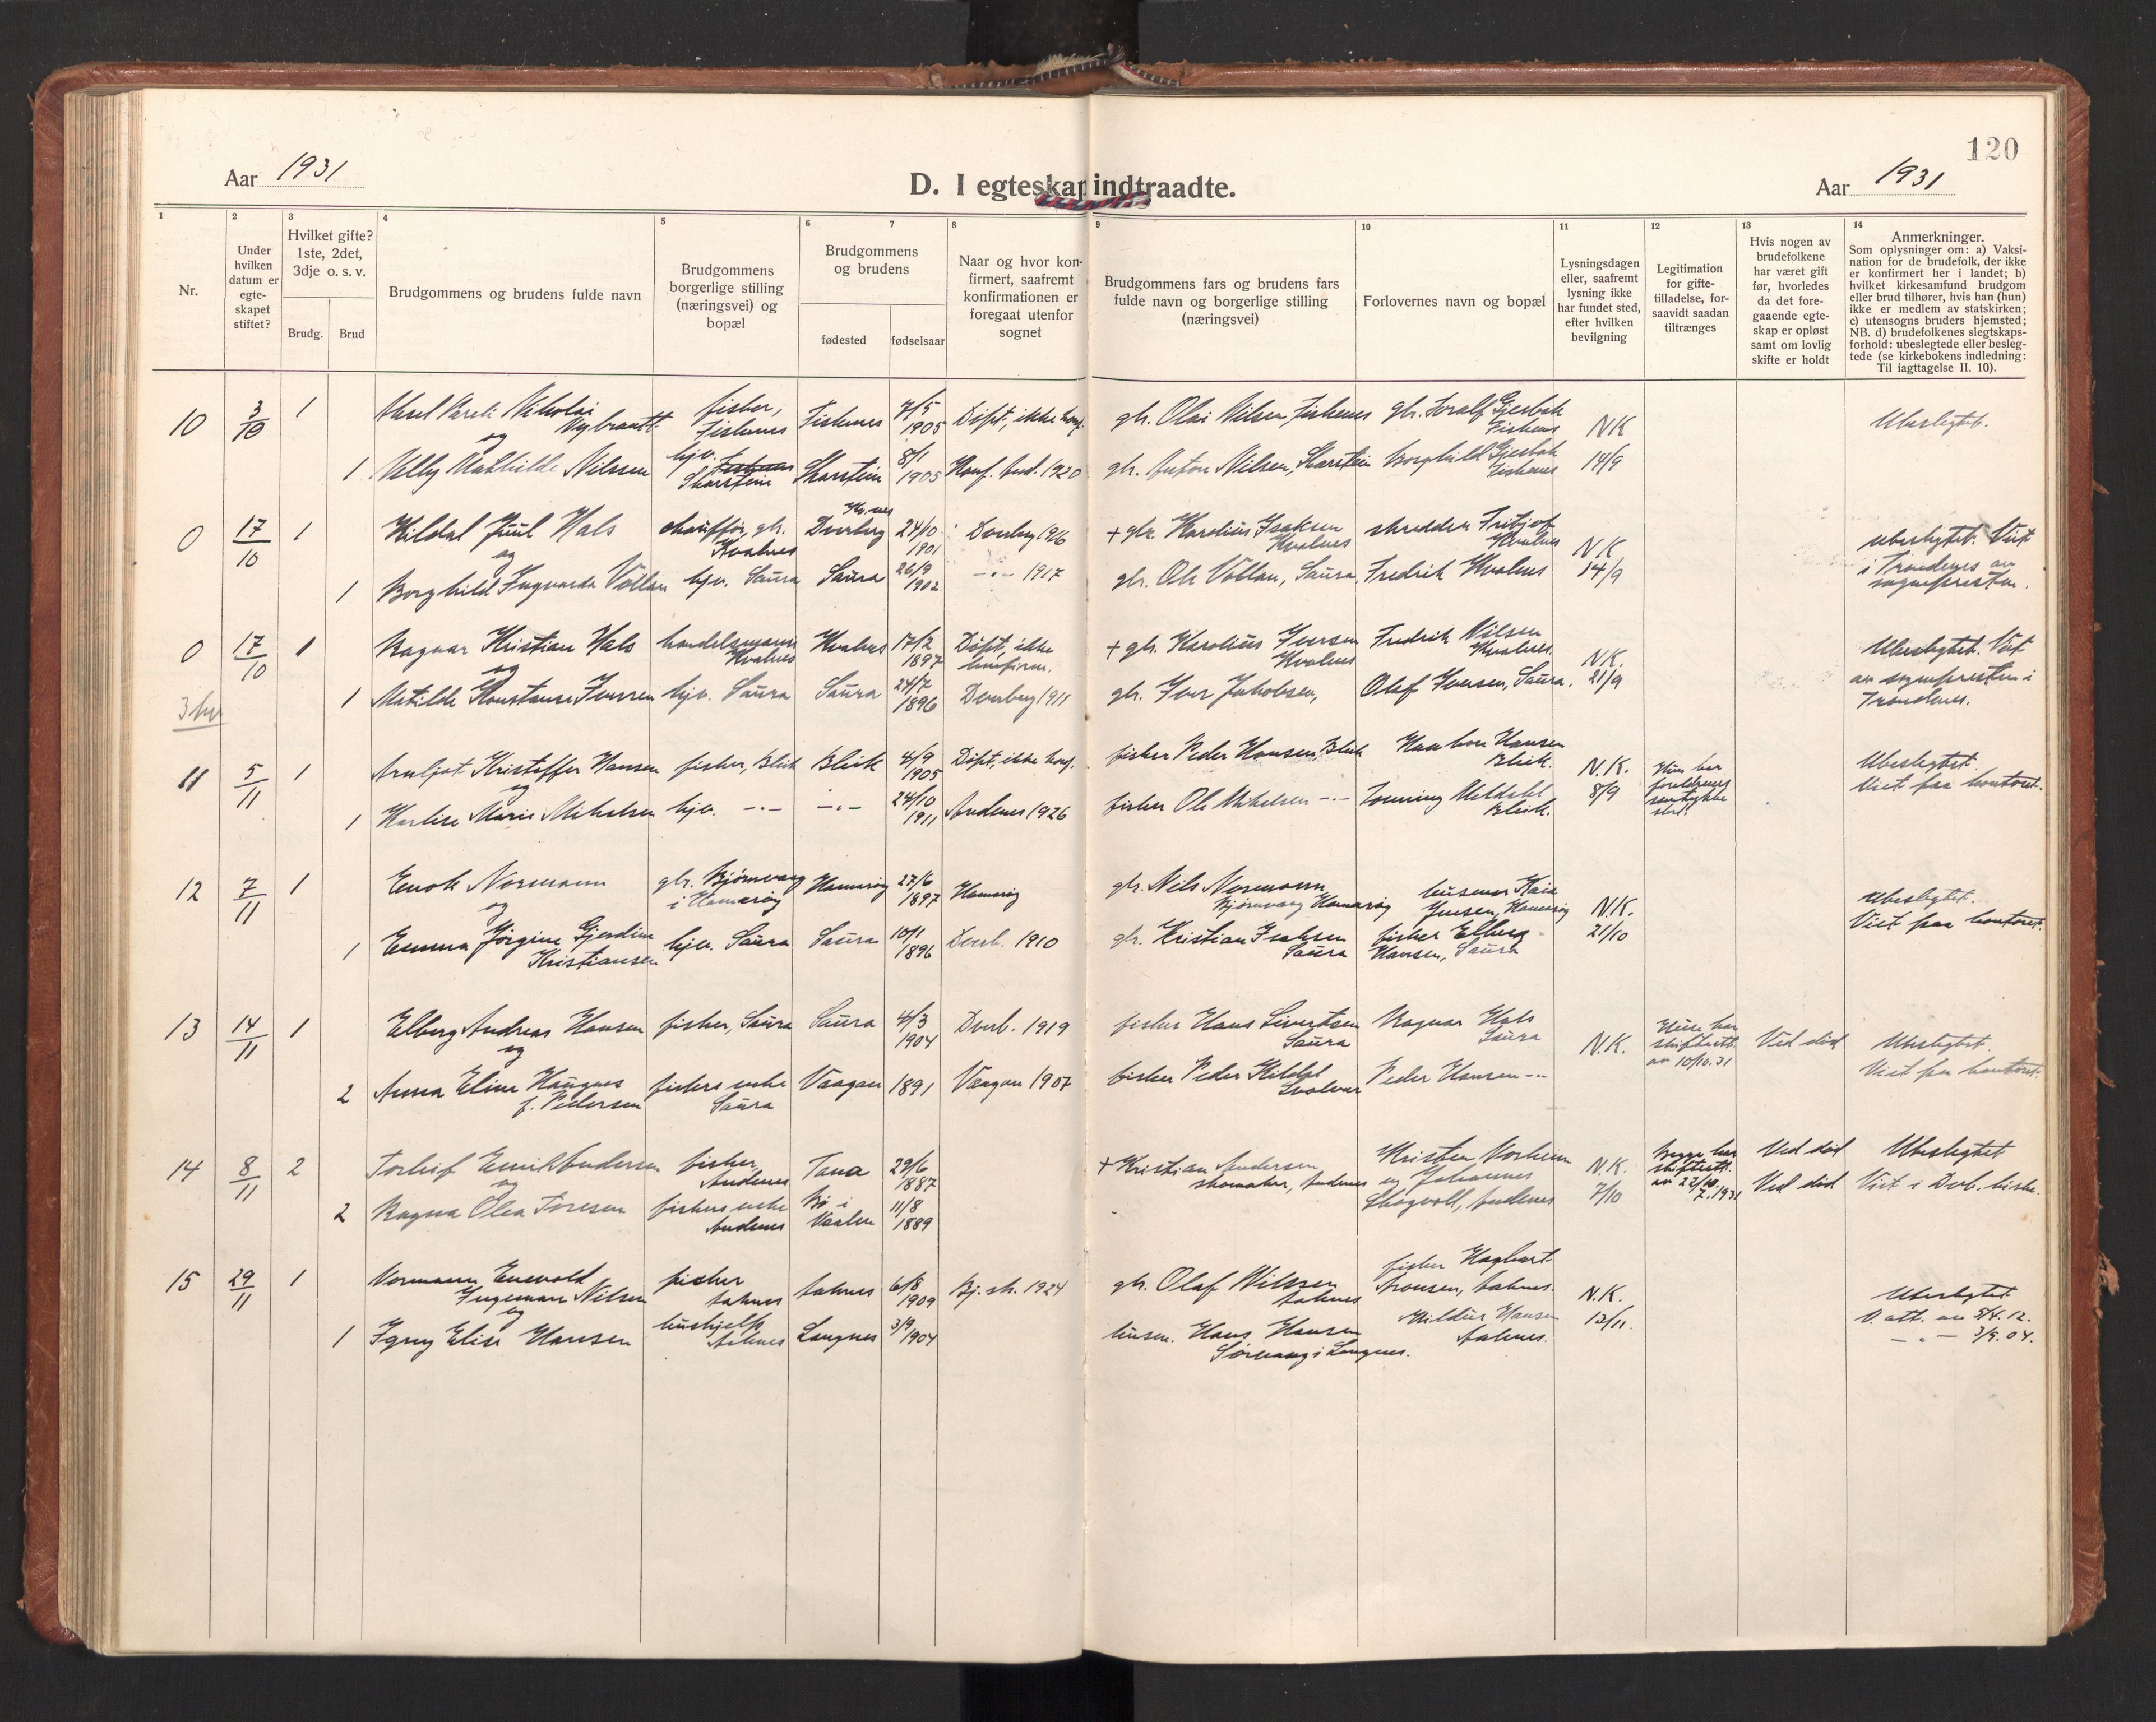 120
Aar 1931
D. I egteskap indtraadte.
Aar 1931
1 2 3 4 5 6 7 8 9 10 11 12 13 14
Nr.
Under hvilken datum er egte-skapet stiftet?
Hvilket gifte? 1ste, 2det, 3dje o. s. v.
Brudg. Brud
Brudgommens og brudens fulde navn
Brudgommens borgerlige stilling (næringsvei) og bopæl
Brudgommens og brudens
fødested fødselsaar
Naar og hvor kon-firmert, saafremt konfirmationen er foregaat utenfor sognet
Brudgommens fars og brudens fars fulde navn og borgerlige stilling (næringsvei)
Forlovernes navn og bopæl
Lysningsdagen eller, saafremt lysning ikke har fundet sted, efter hvilken bevilgning
Legitimation for gifte-tilladelse, for-saavidt saadan tiltrænges
Hvis nogen av brudefolkene har været gift før, hvorledes da det fore-gaaende egte-skap er opløst samt om lovlig skifte er holdt
Anmerkninger.
Som oplysninger om: a) Vaksi-nation for de brudefolk, der ikke er konfirmert her i landet; b) hvilket kirkesamfund brudgom eller brud tilhører, hvis han (hun) ikke er medlem av statskirken; c) utensogns bruders hjemsted; NB. d) brudefolkenes slegtskaps-forhold: ubeslegtede eller besleg-tede (se kirkebokens indledning: Til iagttagelse II. 10).
10 3/10 1 Nikolai fisker, Fiskenes Fiskenes 7/5 1905 Döpt, ikke konf. gbr. Olai Nilsen, Fiskenes gbr. Toralf Gjesbak Fiskenes NK Ubeslegtet.
og
1 Mathilde Nilssen hjv. Skarstein Skarstein 8/1 1905 Konf. And. 1920 gbr. Anton Nilsen, Skarstein Borghild Gjesbak Fiskenes 14/9
0 17/10 1 Hildal Juul Hals chauffør, gbr. Kvalnes Dverberg Kv.nes 24/10 1901 Dverberg 1916 + gbr. Karolius Isaksen Kvalnes skredder Fritjof Kvalnes N.K. Ubeslegtet. Viet
og i Trondenes av
1 Borghild Ingvarda Vollan hjv. Saura Saura 26/9 1902 -"- 1917 gbr. Ole Vollan, Saura Fredrik Kvalnes 14/9 sognepresten.
0 17/10 1 Ragnar Kristian Hals handelsmann Kvalnes Kvalnes 17/2 1897 Döpt, ikke konfirm. + gbr. Karolius Iversen Kvalnes Fredrik Nilsen Kvalnes. N.K. Ubeslegtet. Viet
og av sognepresten i
1 Matilde Konstanse Iversen hjv. Saura Saura 24/7 1896 Dverberg 1911 gbr. Iver Jakobsen, Olaf Iversen, Saura. 21/9 Trondenes.
11 5/11 1 Arnljot Kristoffer Hansen fisker, Bleik Bleik 4/9 1905 Döpt, ikke konf. fisker Peder Hansen, Bleik Haakon Hansen Bleik. N.K. Hun har foreldrenes samtykke Ubeslegtet.
og Viet paa kontoret.
1 Karlise Marie Mikalsen hjv. -"- -"- 24/10 1911 Andenes 1926 fisker Ole Mikalsen -"- Bleik. 8/9
12 7/11 1 Enok Normann gbr. Bjørnvang i Hamarøy Hamarøy 27/6 1897 Hamarøy gbr. Nils Normann Bjørnvang Hamarøy Kaia Jensen, Hamarøy N.K. Ubeslegtet.
og Viet paa kontoret.
1 Emma Jørgine Gjerdine Kristiansen hjv. Saura Saura 10/1 1896 Dverb. 1910 gbr. Kristian Isaksen Saura fisker Elberg Hansen, Saura 21/10
13 14/11 1 Elberg Andreas Hansen fisker, Saura Saura 4/3 1904 Dverb. 1919 fisker Hans Sivertsen Saura Ragnar Hals Saura N.K. Hun har skifteatt. av 10/10.31 Ved død Ubeslegtet.
og Viet paa kontoret.
2 Anna Elina Haugnes f. Pedersen fiskers enke Saura Vaagan 1891 Vaagan 1907 fisker Peder Kildal Svolvær Peder Hansen -"-
14 8/11 2 Torleif Emil Andersen fisker Andenes Tana 29/6 1887 + Kristian Andersen skomaker, Andenes Kristen Norheim og Johannes Skogvoll, Andenes N.K. 7/10 Begge har skifteatt. av 22/10. 7.1931 Ved død Ubeslegtet
og
2 Ragna Olea Toresen fiskers enke Andenes Bø i Vesteraalen 11/8 1889 Ved død Viet i Dvb. kirke.
15 29/11 1 Normann Enevold Ingemar Nilsen fisker Aaknes Aaknes 6/8 1909 Bj. sk. 1924 gbr. Olaf Nilssen Aaknes fisker Hagbart Aronsen, Aaknes. N.K. Ubeslegtet
og V. att. av 3/4. 12.
1 Elise Hansen hushjelp Aaknes Langnes 3/9 1904 husm. Hans Hansen Sørvang i Langnes. Hildur Hansen Aaknes. 12/11. -"- 3/9. 04.